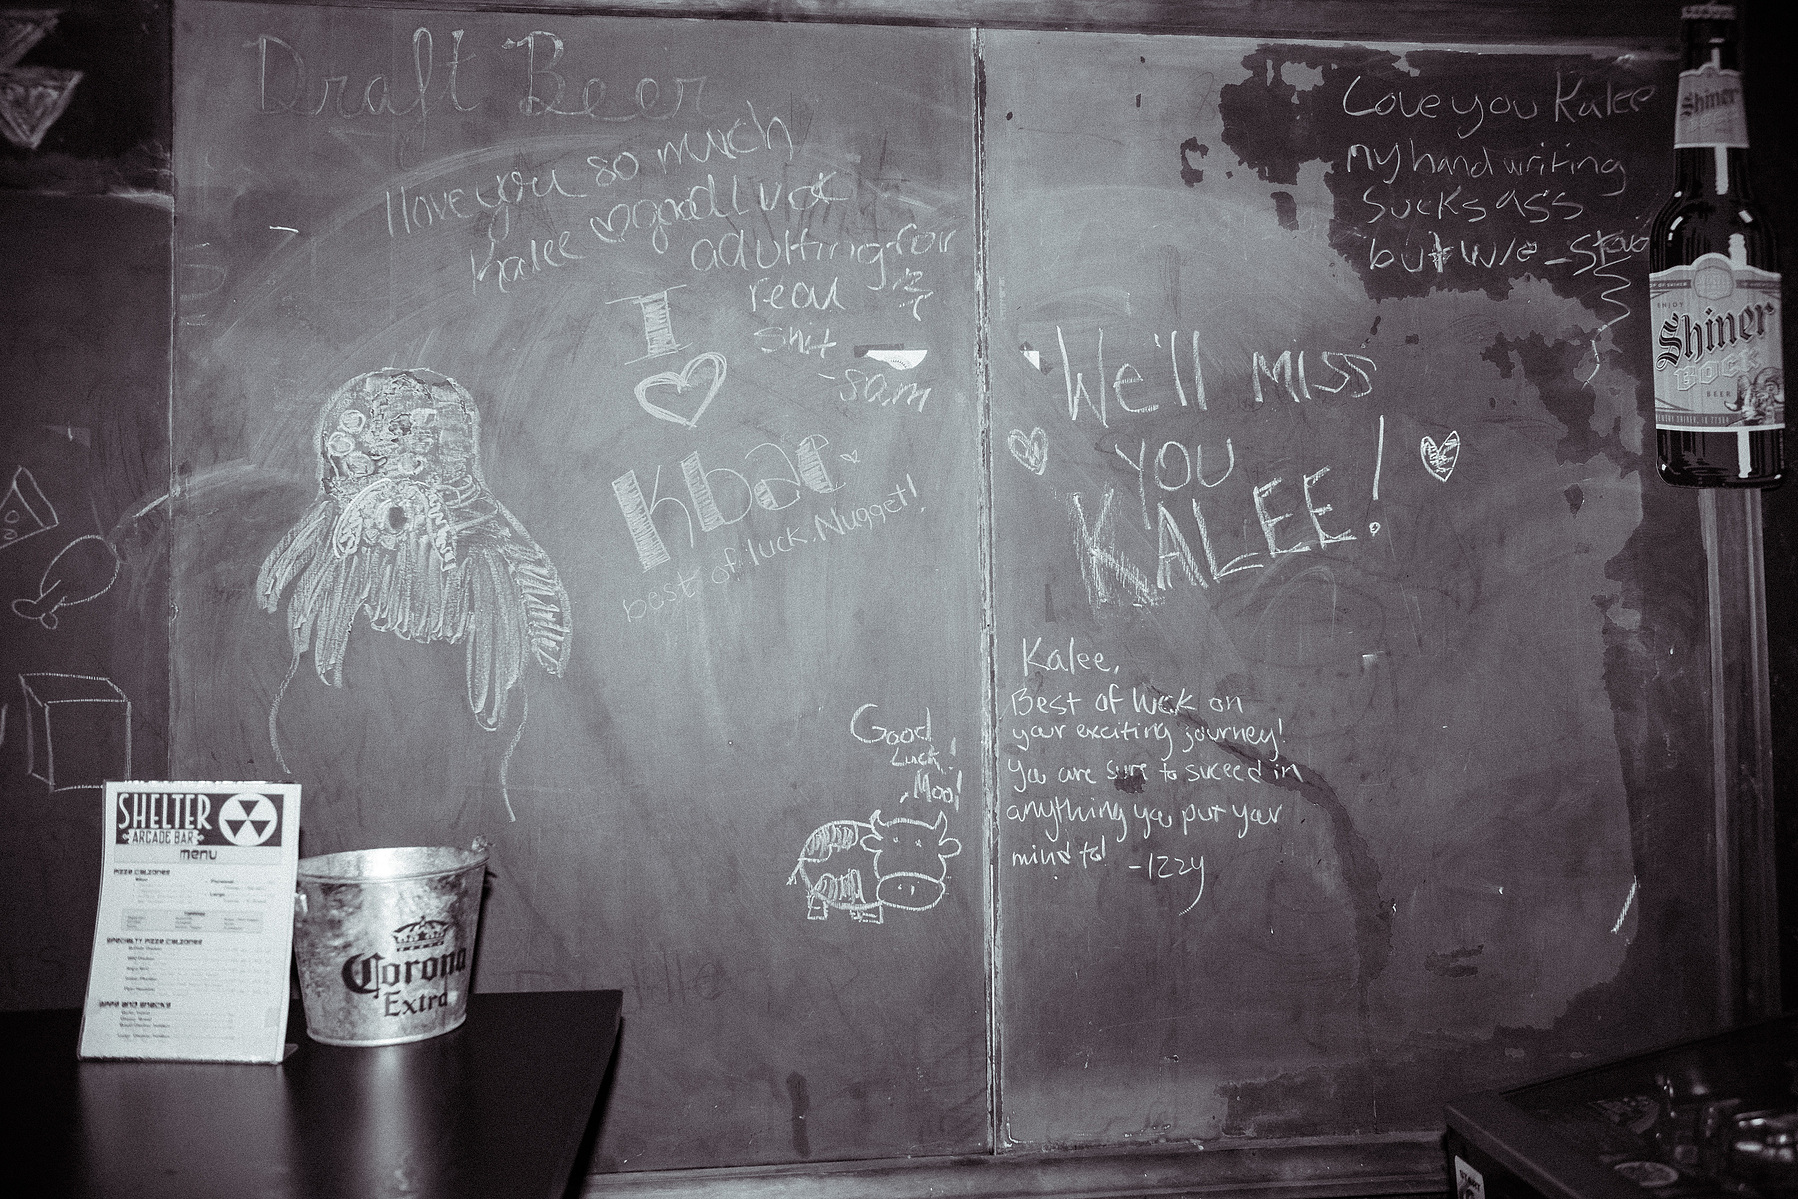 Draft Beer
I love you so much
Kalee ♡ good luck
adulting for
real
shit
-Sam
I
♡
Kbae
best of luck, Nugget!
Good
Luck!
Moo!
Love you Kalee
my handwriting
sucks ass
but w/e
We'll miss
you
KALEE!
Kalee,
Best of luck on
your exciting journey!
You are sure to suceed in
anything you put your
mind to!
-Izzy
Shiner
ENJOY
Shiner
BOCK
BEER
SHELTER
ARCADE BAR
menu
PIZZA CALZONES
SPECIALTY PIZZA CALZONES
Corona
Extra